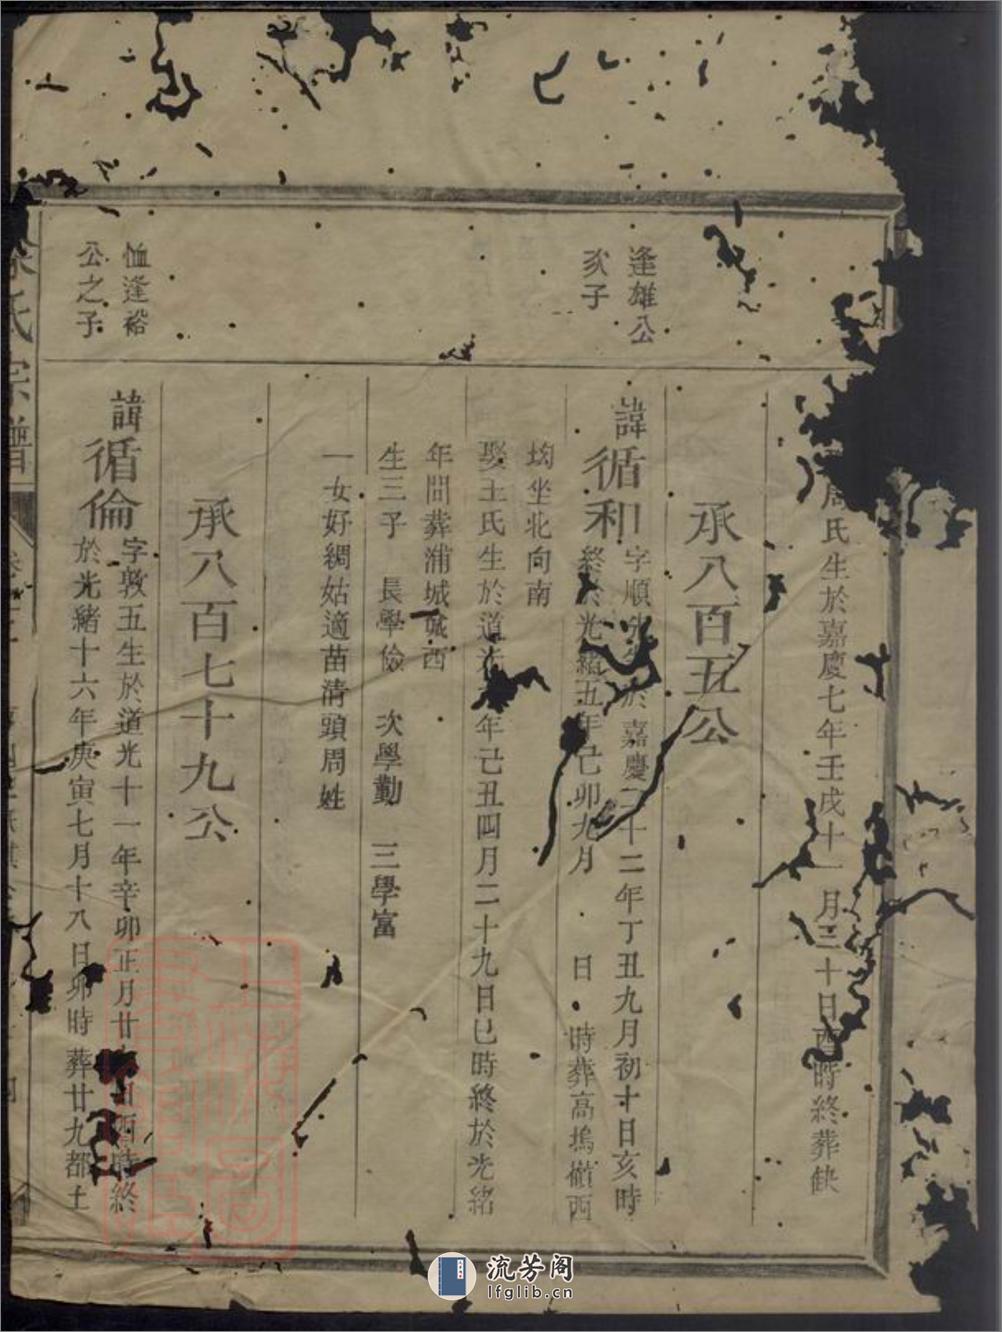 周氏生於嘉慶七年壬戌十一月三十日酉時終葬缺
承八百五公
逢雄公
次子
諱循和
字順 於嘉慶二十二年丁丑九月初十日亥時
終於光緒五年己卯九月 日 時葬高塢嶺西
坳坐北向南
娶王氏生於道光 年己丑四月二十九日巳時終於光緒
年間葬浦城城西
生三子 長學儉 次學勤 三學富
一女好綢姑適苗清頭周姓
承八百七十九公
恤逢裕
公之子
諱循倫
字敦五生於道光十一年辛卯正月廿 日酉時終
於光緒十六年庚寅七月十八日卯時葬廿九都土
氏宗譜
流芳阁
lfglib.cn